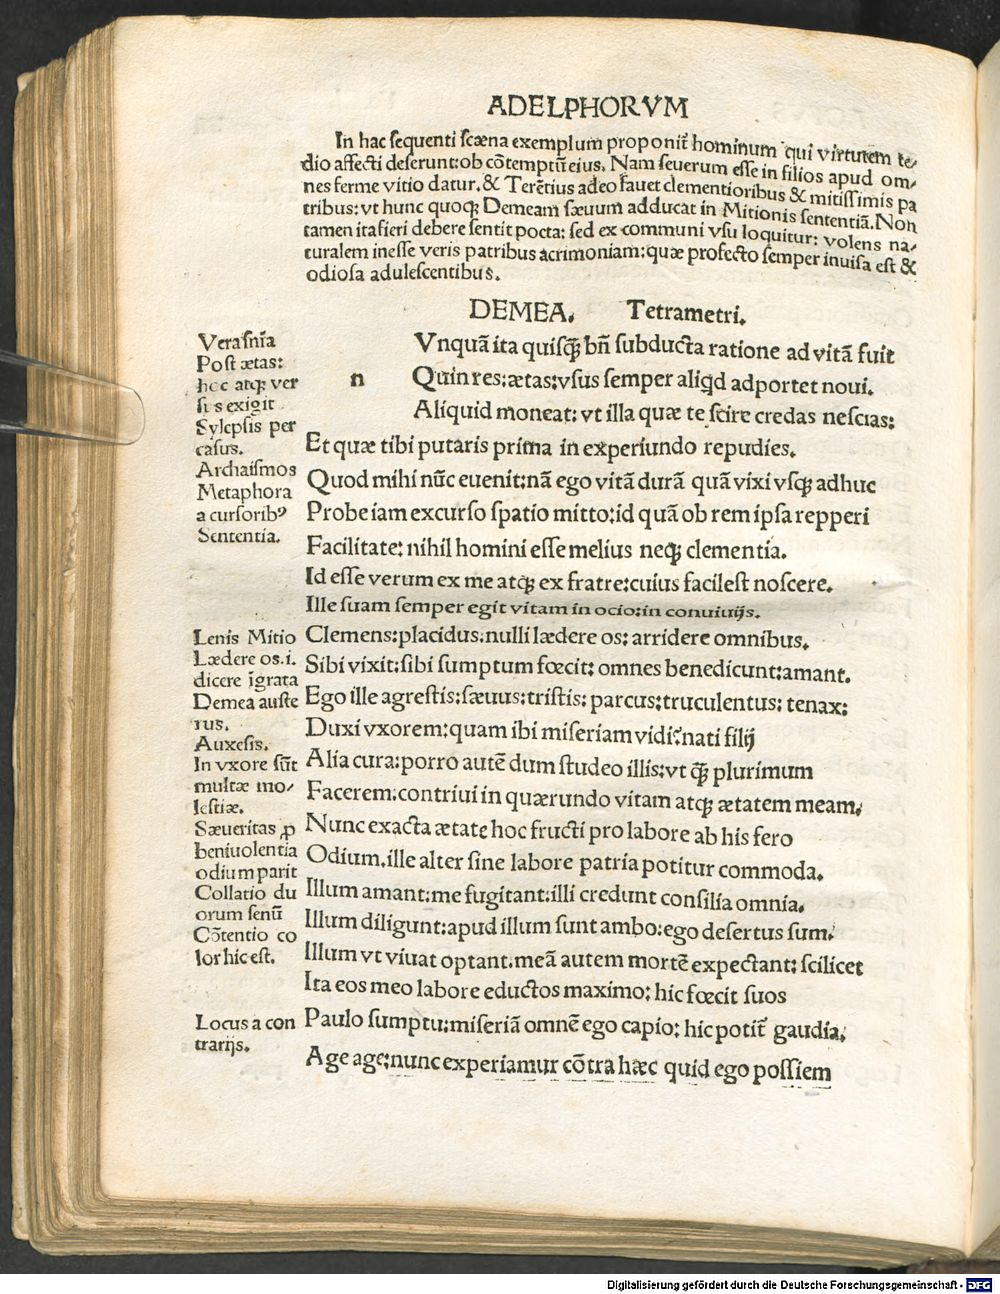 ADELPHORVM
In hac ſequenti ſcæna exemplum proponit᷑ hominum qui virtutem te/
dio affecti deſerunt: ob cõtemptũ eius. Nam ſeuerum eſſe in filios apud om/
nes ferme vitio datur. & Terẽtius adeo fauet clementioribus & mitiſſimis pa
tribus: vt hunc quoqꝫ Demeam ſæuum adducat in Mitionis ſententiã. Non
tamen ita fieri debere ſentit pocta: ſed ex communi vſu loquitur: volens na/
turalem ineſſe veris patribus acrimoniam: quæ profecto ſemper inuiſa eſt &
odioſa aduleſcentibus.
DEMEA. Tetrametri.
Vnquã ita quiſqꝫ̃ bñ ſubducta ratione ad vitã fuit
n Quin res: ætas: vſus ſemper aliqd adportet noui.
Aliquid moneat: vt illa quæ te ſcire credas neſcias:
Et quæ tibi putaris prima in experiundo repudies.
Quod mihi nũc euenit: nã ego vitã durã quã vixi vſqꝫ adhuc
Probe iam excurſo ſpatio mitto: id quã ob rem ipſa repperi
Facilitate: nihil homini eſſe melius neqꝫ clementia.
Id eſſe verum ex me atqꝫ ex fratre: cuius facileſt noſcere.
Ille ſuam ſemper egit vitam in ocio: in conuiuijs.
Clemens: placidus: nulli lædere os: arridere omnibus.
Sibi vixit: ſibi ſumptum fœcit: omnes benedicunt: amant.
Ego ille agreſtis: ſæuus: triſtis: parcus: truculentus: tenax:
Duxi vxorem: quam ibi miſeriam vidi? nati filij
Alia cura: porro autẽ dum ſtudeo illis: vt qꝫ̃ plurimum
Facerem: contriui in quærundo vitam atqꝫ ætatem meam:
Nunc exacta ætate hoc fructi pro labore ab his fero
Odium. ille alter ſine labore patria potitur commoda.
Illum amant: me fugitant: illi credunt conſilia omnia.
Illum diligunt: apud illum ſunt ambo: ego deſertus ſum.
Illum vt viuat optant: meã autem mortẽ expectant: ſcilicet
Ita eos meo labore eductos maximo: hic fœcit ſuos
Paulo ſumptu: miſeriã omnẽ ego capio: hic potit᷑ gaudia.
Age age: nunc experiamur cõtra hæc quid ego poſſiem
Vera ſñia
Poſt ætas:
hec atqꝫ ver
ſus exigit
Sylepſis per
caſus.
Archaiſmos
Metaphora
a curſoribꝰ
Sententia.
Lenis Mitio
Lædere os.i.
dicere ĩgrata
Demea auſte
rus.
Auxeſis.
In vxore ſũt
multæ mo/
leſtiæ.
Sæueritas ꝓ
beniuolentia
odium parit
Collatio du
orum ſenũ
Cõtentio co
lor hic eſt.
Locus a con
trarijs.
Digitalisierung gefördert durch die Deutsche Forschungsgemeinschaft - DFG